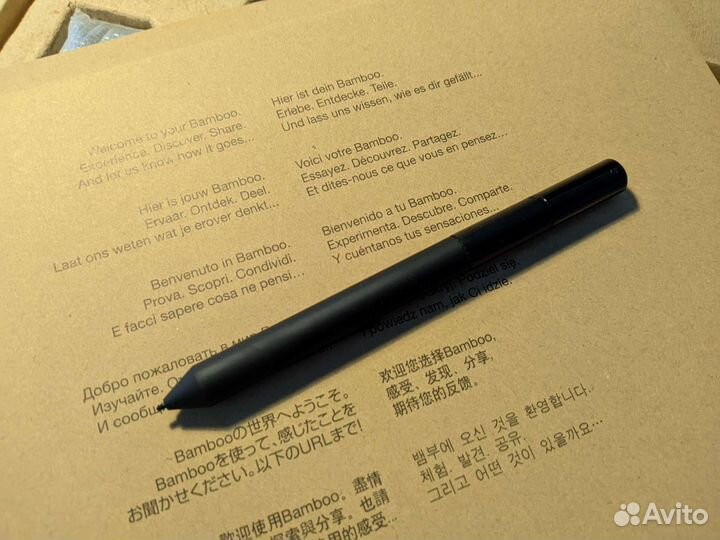 Welcome to your Bamboo.
Experience. Discover. Share.
And let us know how it goes...
Hier ist dein Bamboo.
Erlebe. Entdecke. Teile.
Und lass uns wissen, wie es dir gefällt...
Hier is jouw Bamboo.
Ervaar. Ontdek. Deel.
Laat ons weten wat je erover denkt...
Voici votre Bamboo.
Essayez. Découvrez. Partagez.
Et dites-nous ce que vous en pensez...
Benvenuto in Bamboo.
Prova. Scopri. Condividi.
E facci sapere cosa ne pensi...
Bienvenido a tu Bamboo.
Experimenta. Descubre. Comparte.
Y cuéntanos tus sensaciones...
Добро пожаловать в мир
Изучайте.
И сообщ
Podziel się.
powiedz nam, jak Ci idzie.
Bambooの世界へようこそ。
Bambooを使って、感じたことを
お聞かせください。以下のURLまで!
欢迎您选择Bamboo,
感受、发现、分享,
期待您的反馈。
歡迎使用Bamboo。盡情
探索與分享。也請
使用的感受...
뱀부에 오신 것을 환영합니다.
체험. 발견. 공유.
그리고 어떤 것이 있을까요...
Avito